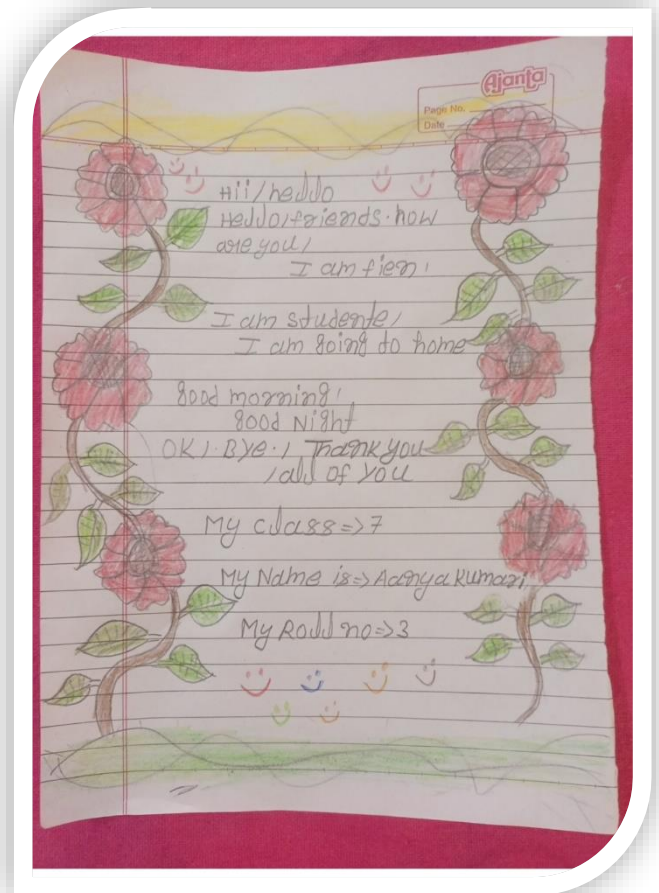 Ajanta
Page No.
Date
Hii/hello
Hello/friends. how
are you/
I am fien/
I am studente/
I am going to home
good morning/
good Night
OK/. Bye./ Thank you
/all of you
My class => 7
My Name is => Aanya Kumari
My Roll no => 3